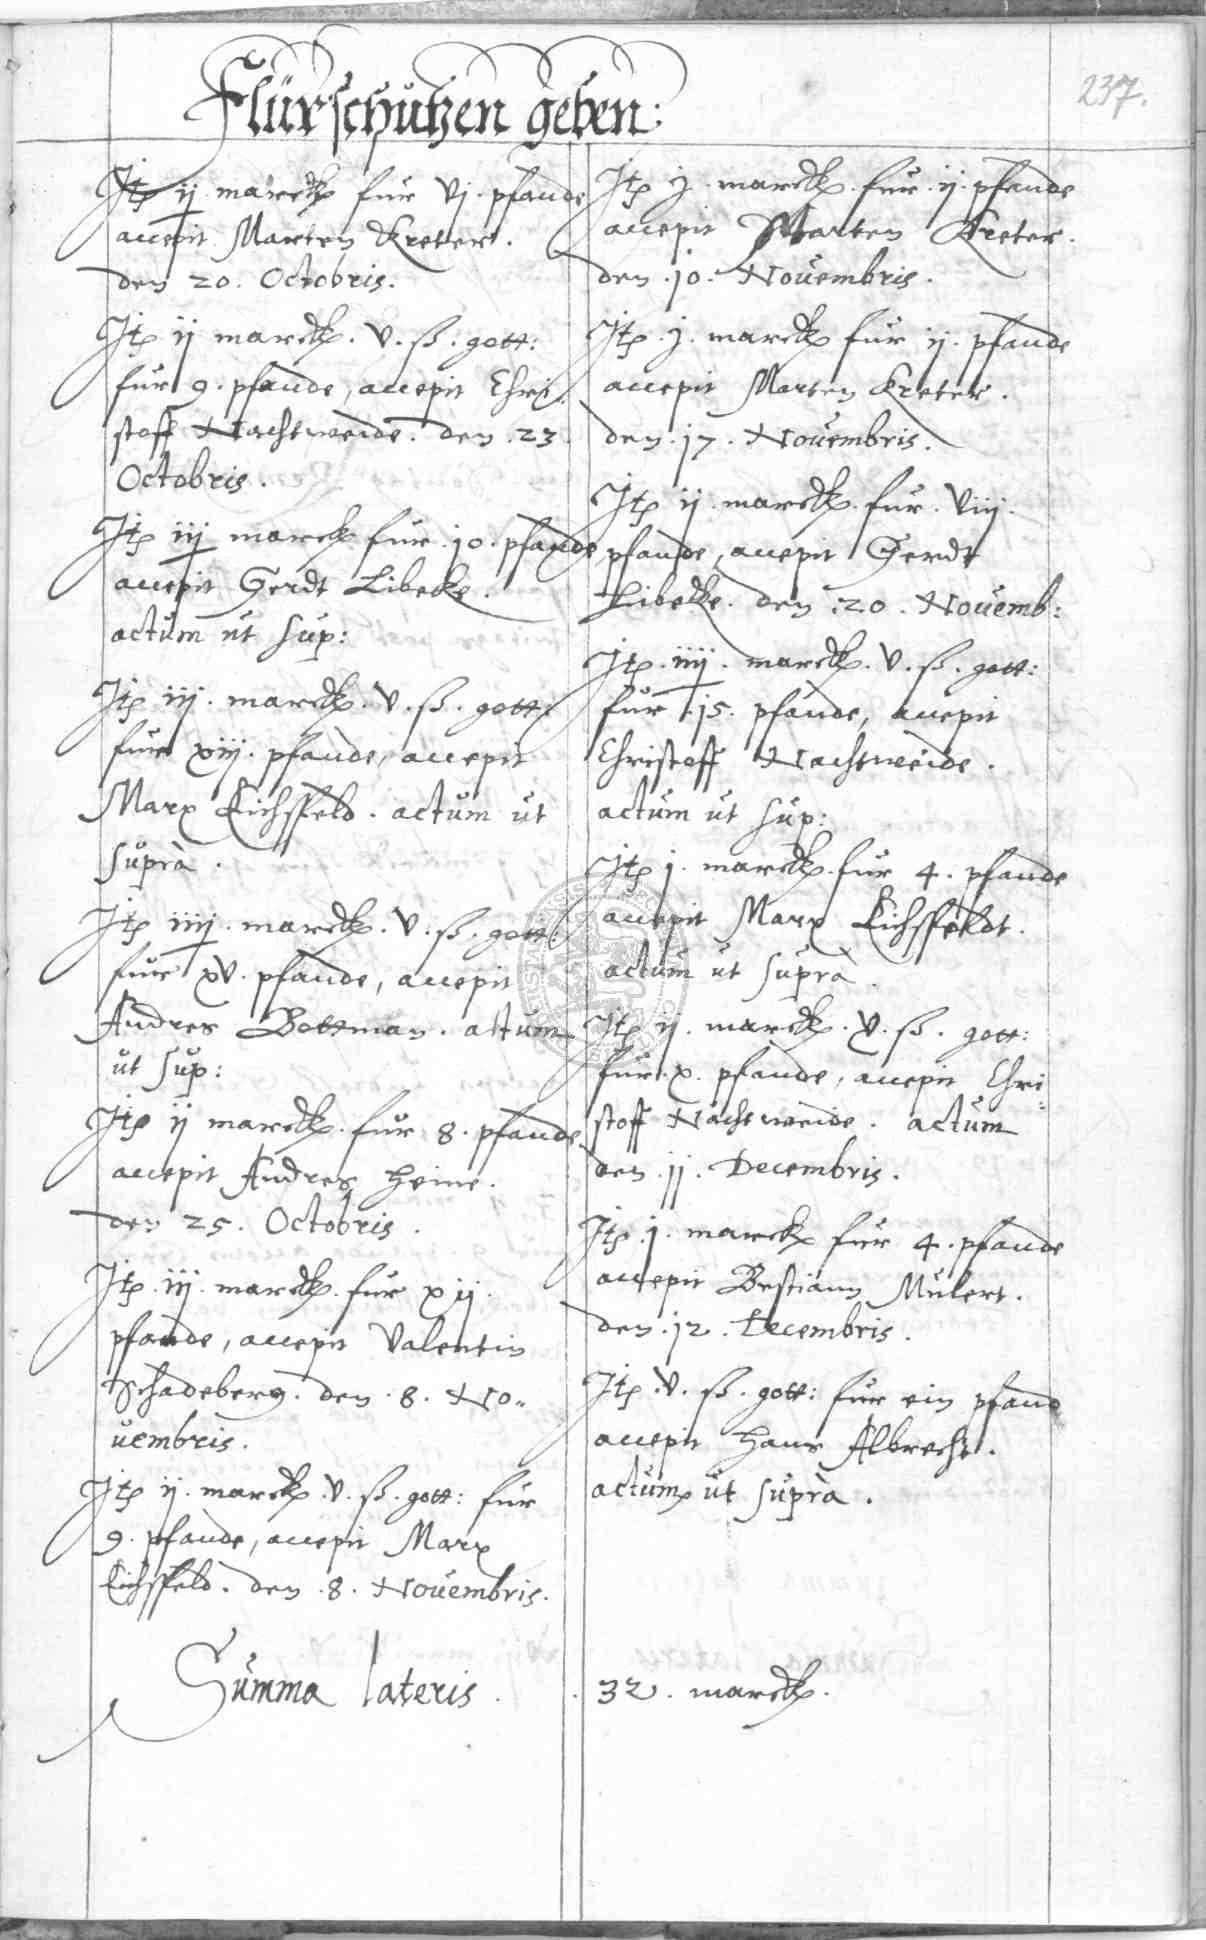 237.
Flürschützen geben:
Itp ij marck für vj. pfande
accepit Marten Kreter.
den 20. Octobris.
Itp ij marck. v. ß. gott:
für 9. pfande, accepit Chri
stoff Nachtweide. den .23.
Octobris.
Itp iij marck für .10. pfande
accepit Gerdt Libecke.
actum ut sup:
Itp iij. marck. v. ß. gott:
für xiij. pfande, accepit
Marx Eichsfeld. actum ut
suprà.
Itp iiij. marck. v. ß. gott:
für xv. pfande, accepit
Andres Bottman. actum
ut sup:
Itp ij marck. für 8. pfande
accepit Andres Heine.
den 25. Octobris.
Itp iij. marck. für xij.
pfande, accepit Valentin
Schadeberg. den .8. No„
uembris.
Itp ij. marck. v. ß. gott: für
9. pfande, accepit Marx
Eichsfeld. den .8. Nouembris.
Itp j. marck. für .ij. pfande
accepit Marten Kreter.
den .10. Nouembris.
Itp .j. marck für ij. pfande
accepit Marten Kreter.
den .17. Nouembris.
Itp ij. marck. für. viij.
pfande, accepit Gerdt
Libecke. den .20. Nouemb:
Itp. iiij. marck. v. ß. gott:
für .15. pfande, accepit
Christoff Nachtweide.
actum ut sup:
Itp j. marck. für 4. pfande
accepit Marx Eichsfeldt.
actum ut suprà.
Itp ij. marck. v. ß. gott:
für. x. pfande, accepit Chri
stoff Nachtweide. actum
den .11. Decembris.
Itp .j. marck für 4. pfande
accepit Bestiann Mulert.
den .12. Decembris.
Itp .v. ß. gott: für ein pfand
accepit Hans Albrecht.
actum ut suprà.
Summa lateris . . 32. marck.